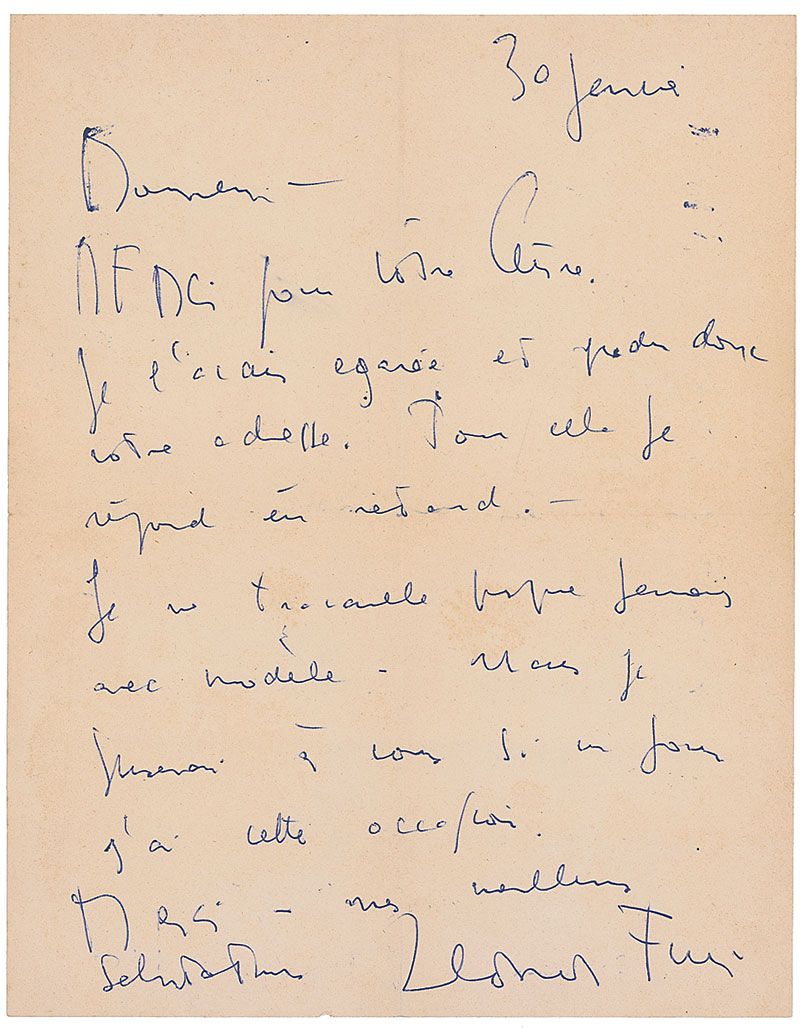 30 Janvier
Monsieur —
MERCi pour votre lettre.
Je l'avais egarée et donc
votre adresse. Pour cela je
répond en retard. —
Je ne travaille presque jamais
avec modèle — Mais je
penserai à vous si un jour
j'ai cette occasion.
Merci — mes meilleurs
salutations Leonor Fini